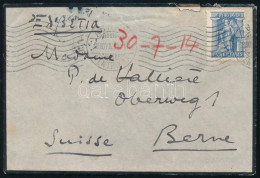 30-7-14
Madame
P. de Vallière
Oberweg 1
Suisse Berne